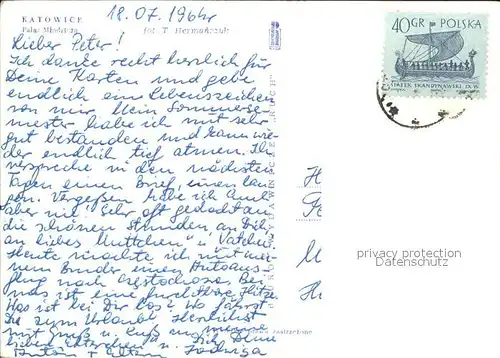 KATOWICE
Pałac Młodzieży
fot. T. Hermańczyk
18.07.1964r
40GR POLSKA
STATEK SKANDYNAWSKI IX W.
Lieber Peter!
Ich danke recht herzlich für
Deine Karten und gebe
endlich ein Lebenszeichen
von mir. Mein Sommerse-
mester habe ich mit sehr
gut bestanden und kann wie-
der endlich tief atmen. Ich
verspreche in den nächsten
Tagen einen Brief, einen lan-
gen. Vergessen habe ich Euch
aber nie. Sehr oft gedacht an
die schönen Stunden, an Dich
an liebes Muttchen u. Vatchen
Heute machte ich mit mei-
nem Bruder einen Autoaus-
flug nach Częstochowa. Bei
uns ist eine furchtbare Hitze.
Was ist bei Dir los? Wo fährst
Du zum Urlaub? Herzlichst
mit Gruß u. Kuß
lieben Elterchen u. Dich
Jadwiga
privacy protection
Datenschutz